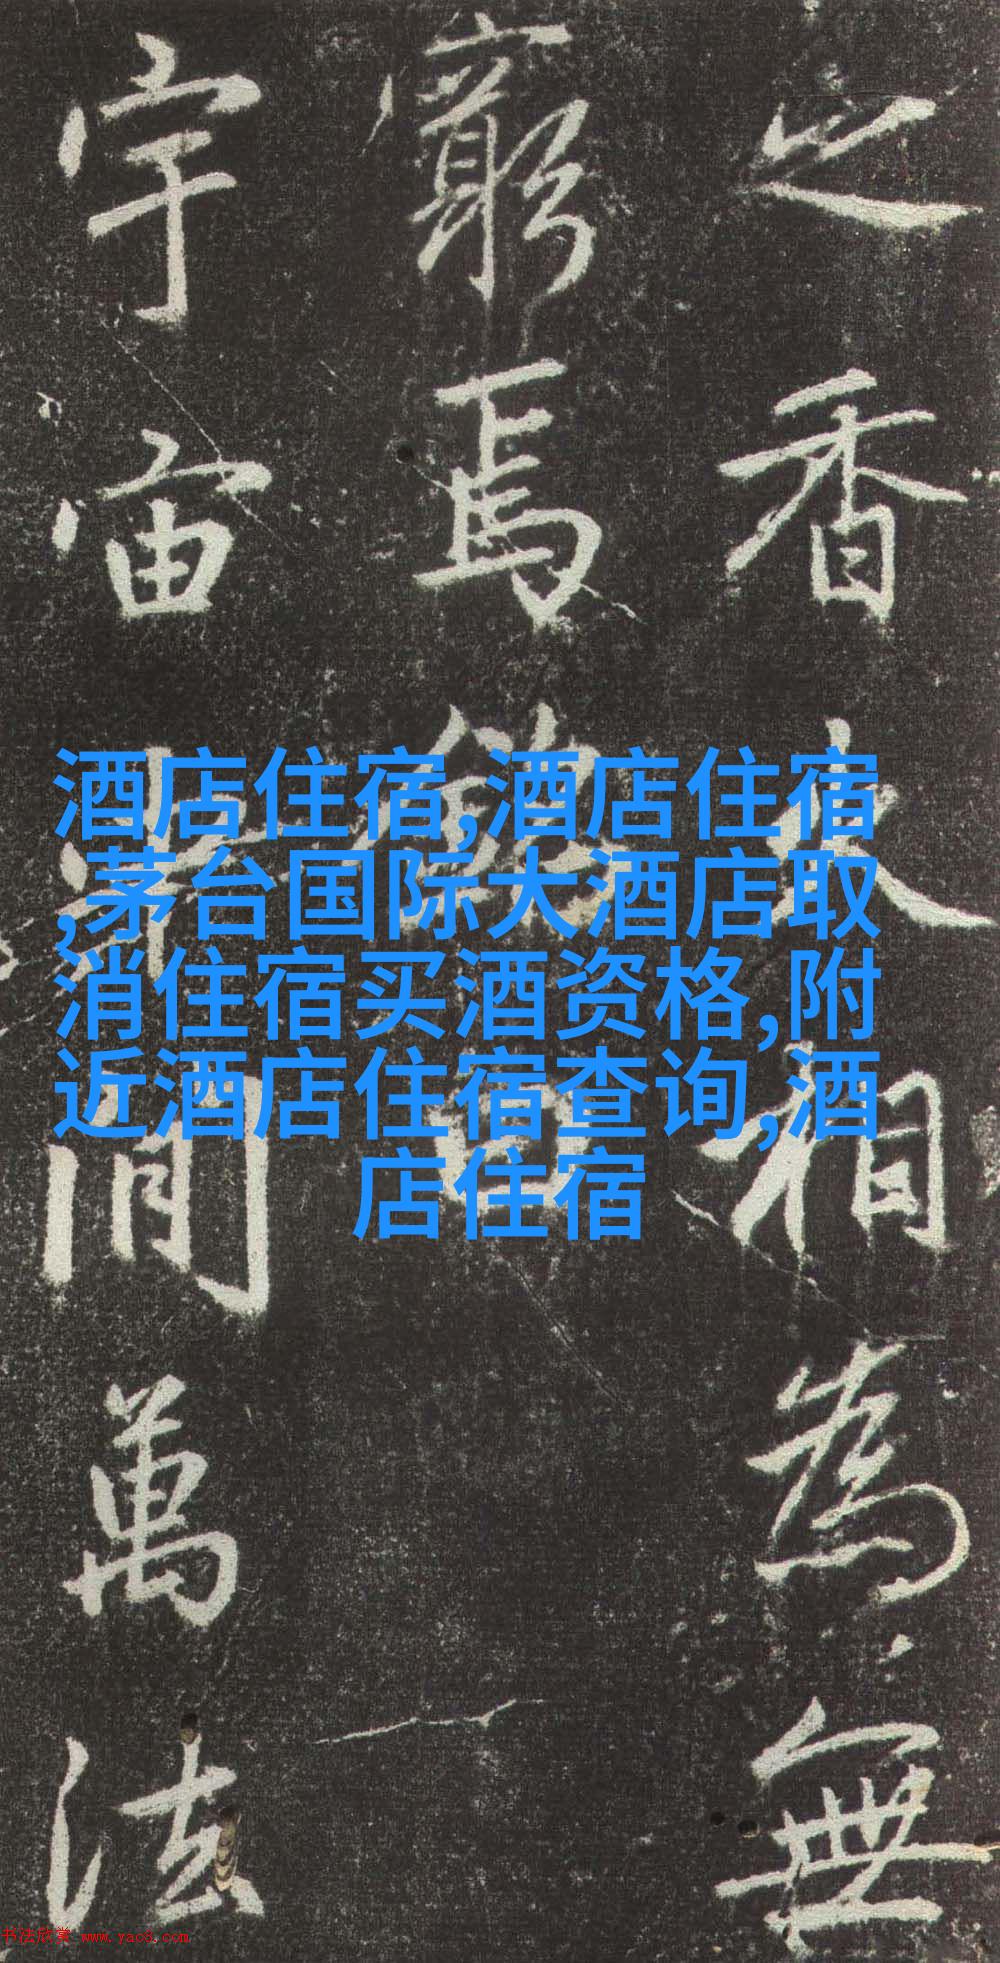 之香大相為無
窮焉
宇宙
間萬法
酒店住宿,酒店住宿
,茅台国际大酒店取
消住宿买酒资格,附
近酒店住宿查询,酒
店住宿
书法欣赏 www.yac8.com